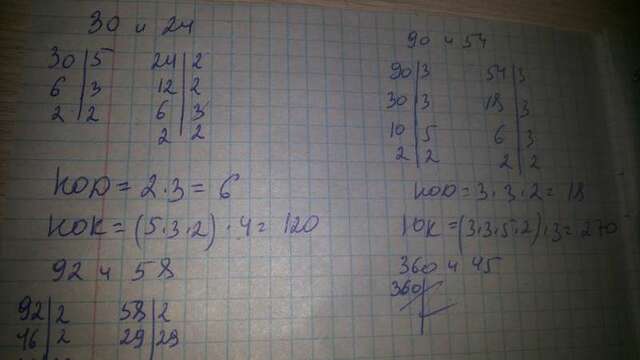 30 и 24
30 | 5
6 | 3
2 | 2
24 | 2
12 | 2
6 | 3
2 | 2
НОД = 2 · 3 = 6
НОК = (5 · 3 · 2) · 4 = 120
92 и 58
92 | 2
46 | 2
58 | 2
29 | 29
90 и 54
90 | 3
30 | 3
10 | 5
2 | 2
54 | 3
18 | 3
6 | 3
2 | 2
НОД = 3 · 3 · 2 = 18
НОК = (3 · 3 · 5 · 2) · 3 = 270
360 и 45
360